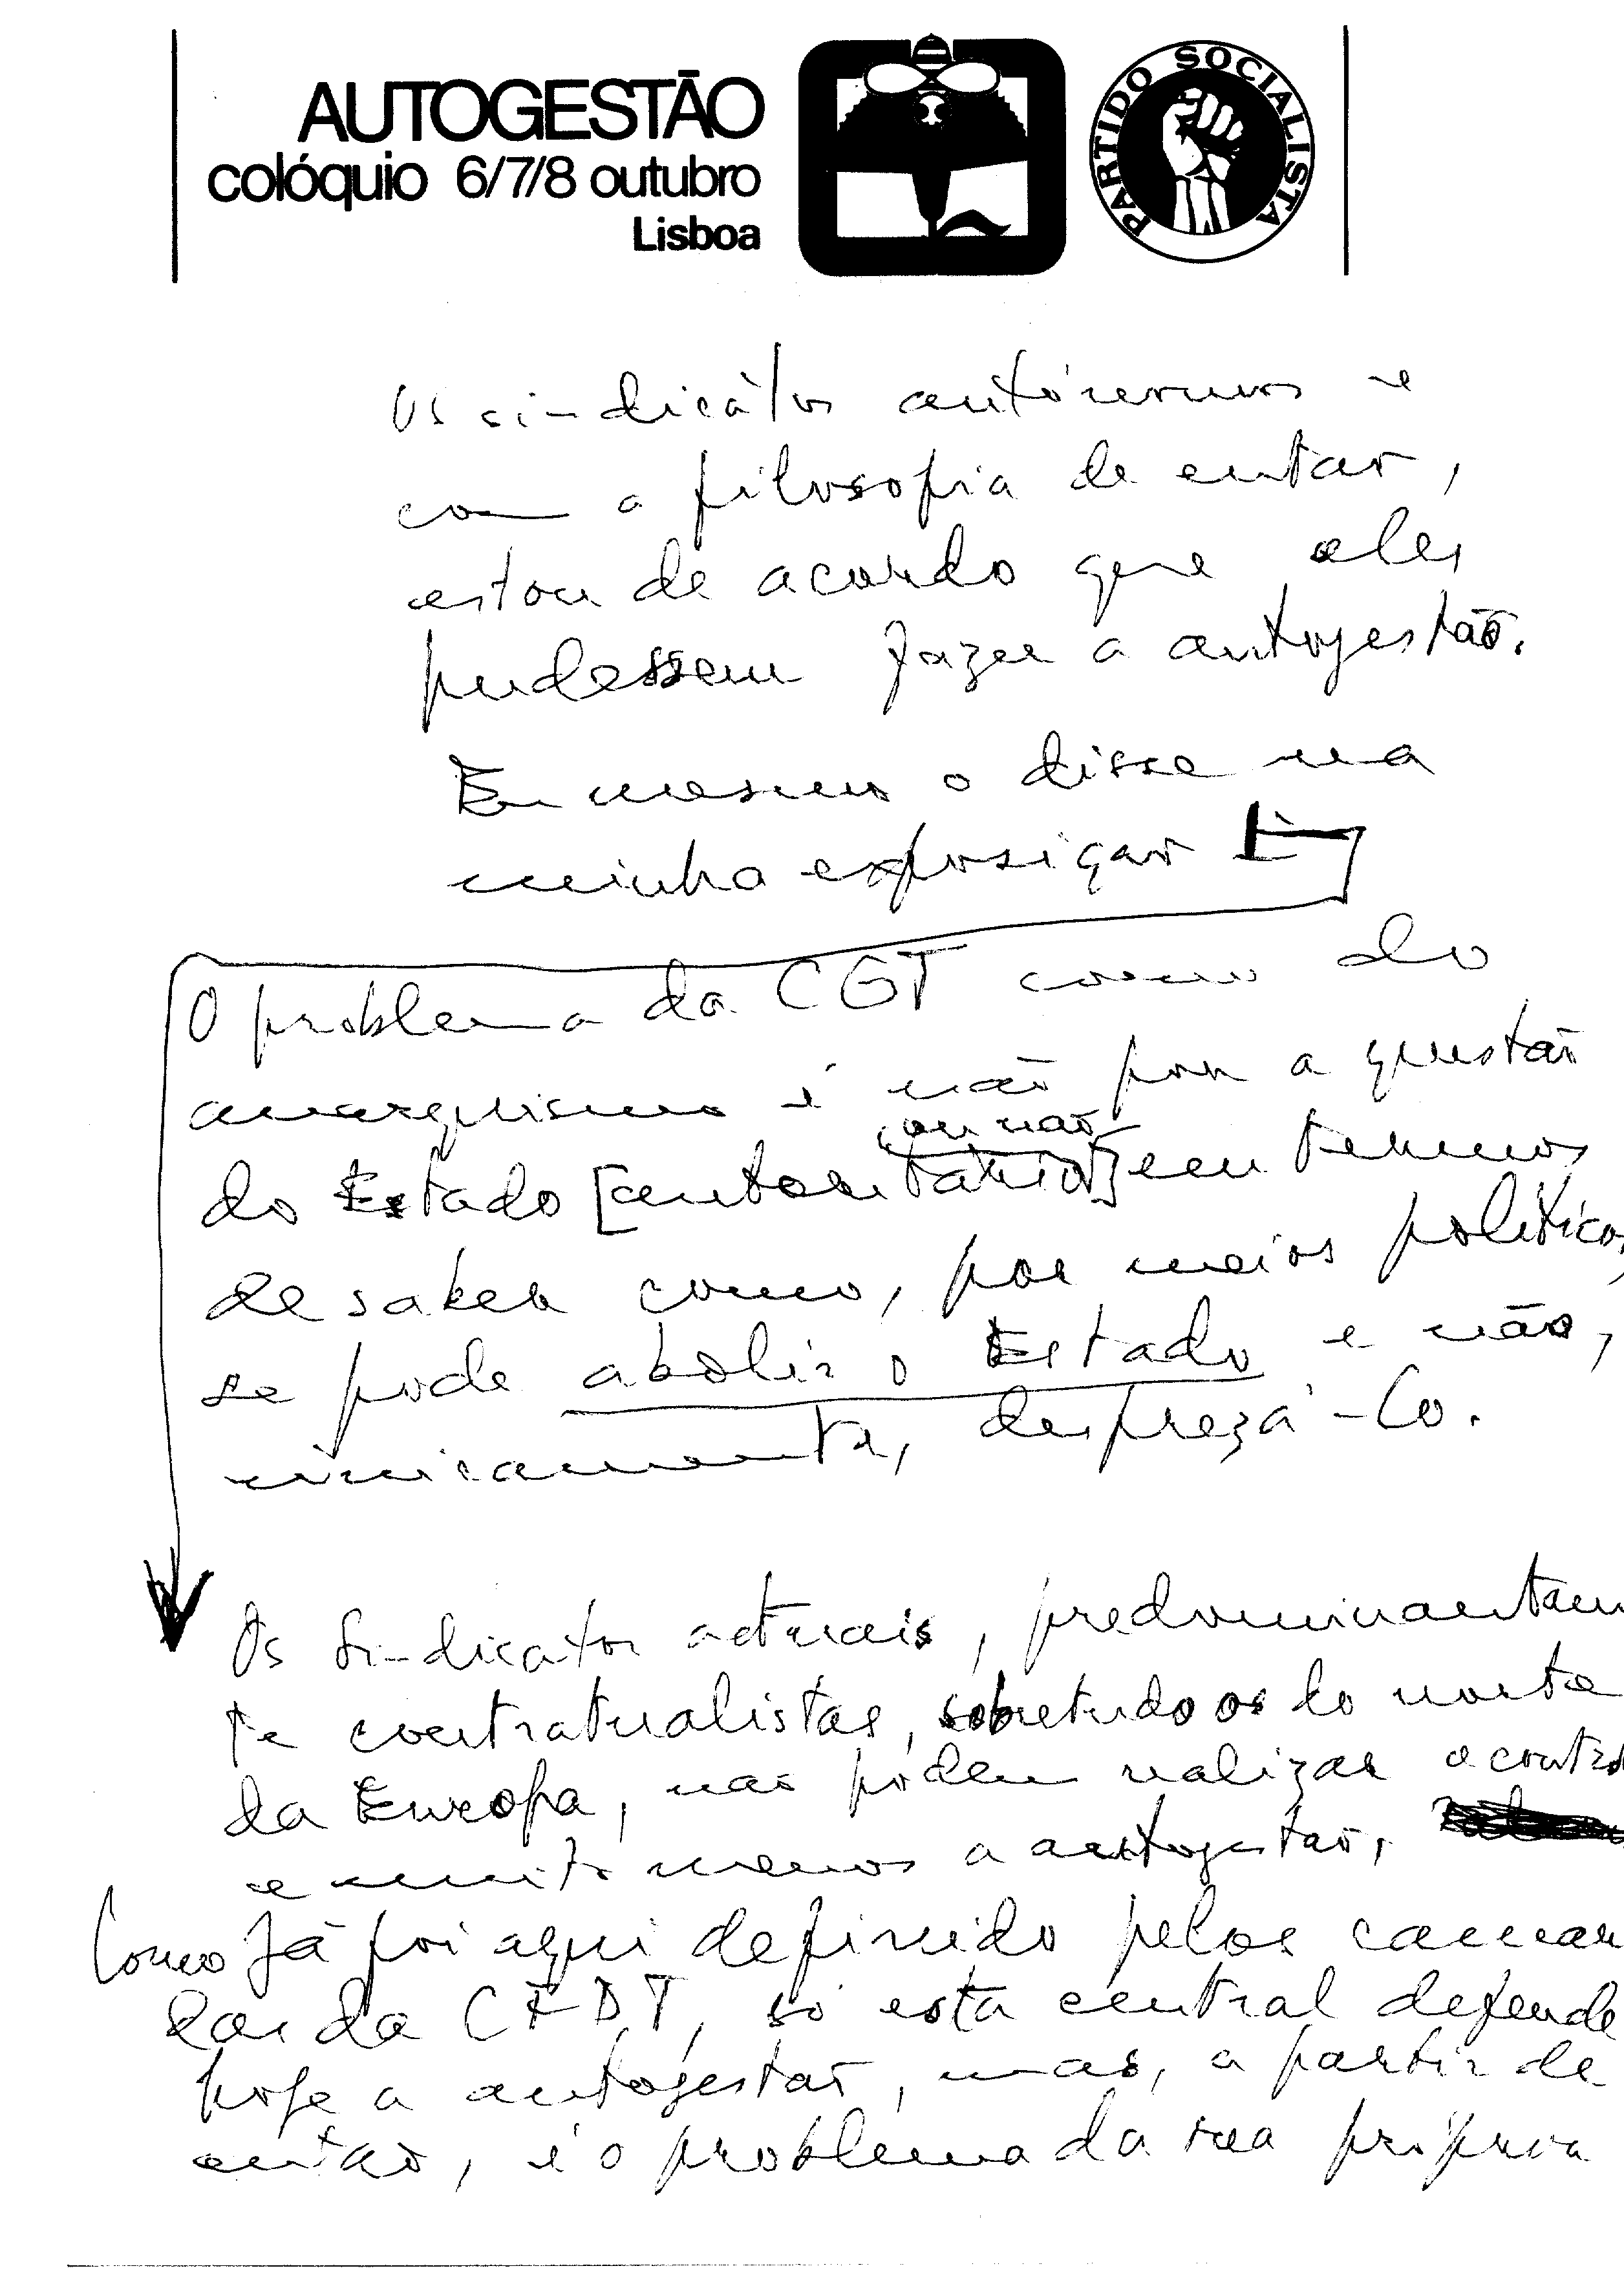 AUTOGESTÃO
colóquio 6/7/8 outubro
Lisboa
PARTIDO SOCIALISTA
Os sindicatos autónomos e
com a filosofia de entao,
estou de acordo que eles
pudessem fazer a autogestão.
Eu mesmo o disse na
minha exposiçao
O problema da CGT como do
anarquismo é não por a questão
ou não
do Estado [autoritário] em termos
de saber como, por meios políticos,
se pode abolir o Estado e não,
unicamente, desprezá-lo.
Os sindicatos actuais, predominantemen
te contratualistas, sobretudo os do norte
da Europa, não podem realizar o contro
e muito menos a autogestão.
Como Já foi aqui definido pelos camara
das da CFDT, só esta central defende
hoje a autogestão, mas, a partir de
então, é o problema da sua própria